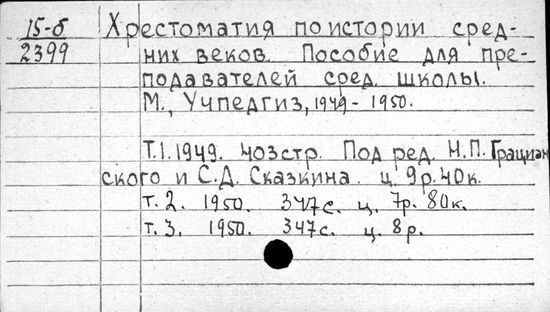 15-б Хрестоматия по истории сред-
2399 них веков. Пособие для пре-
подавателей сред. школы.
М., Учпедгиз, 1949-1950.
Т.1. 1949. 403стр. Под ред. Н.П. Грациан
ского и С.Д. Сказкина. ц. 9р.40к.
т. 2. 1950. 347с. ц. 7р. 80к.
т. 3. 1950. 347с. ц. 8р.